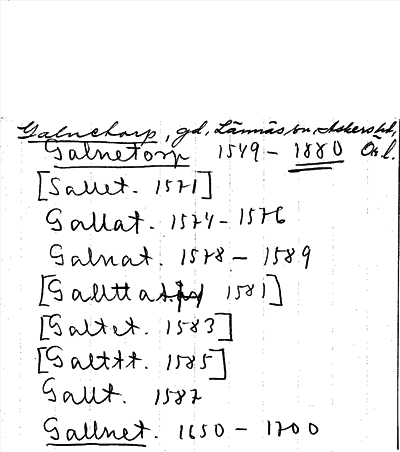 Galnetorp, gd, Lännäs sn, Askers hd,
Galnetorp 1549 - 1880 Ös l.
[Sallet. 1571]
Gallat. 1574 - 1576
Galnat. 1578 - 1589
[Galltta 1581]
[Galtet. 1583]
[Galttt. 1585]
Gallt. 1587
Gallnet. 1650 - 1700